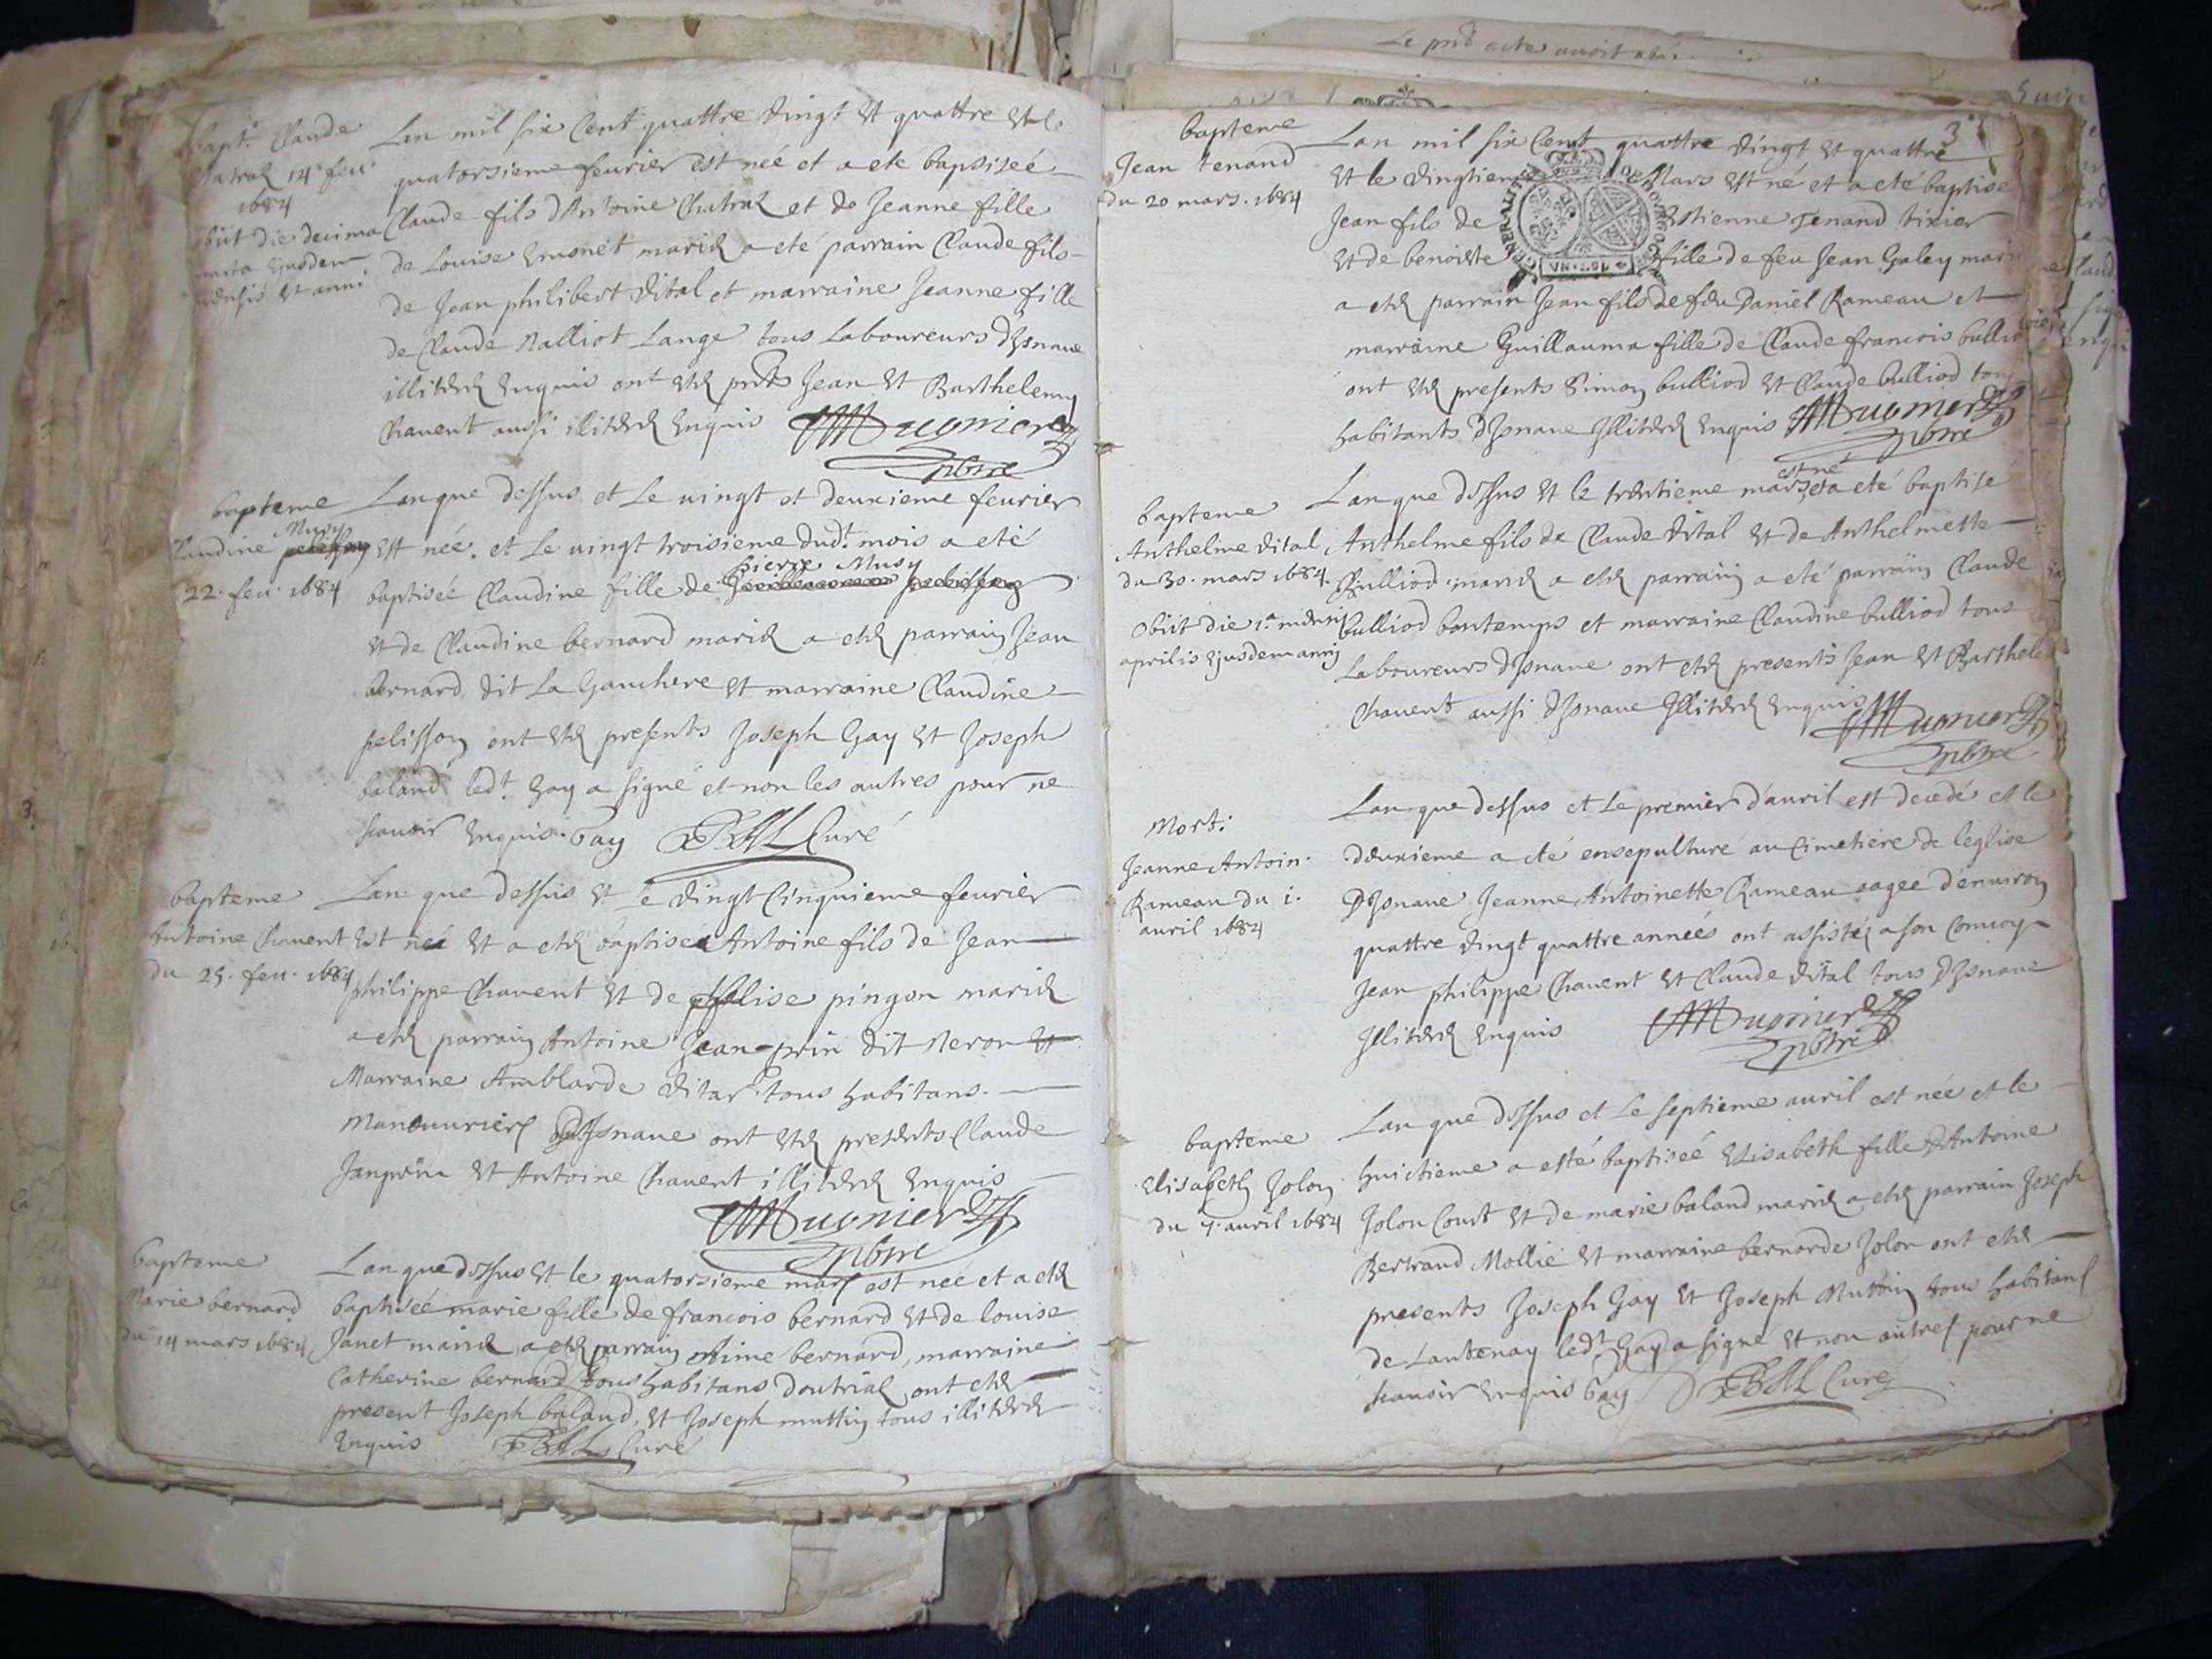 Le pnt acte auoit eté
bapt. Claude
Chatral 14 feu
1684
obiit die decima
ejusdem
mensis et anni
Lan mil six Cent quattre vingt et quattre et le
quatorsieme feurier est neé et a ete baptiseé
Claude fils dAntoine Chatral et de Jeanne fille
de Louise marié a eté parrain Claude fils
de Jean philibert Vital et marraine Jeanne fille
de Claude Nalliot Lange tous Laboureurs dJsnaue
illiteré enquis ont eté pnts Jean et Barthelemy
Chauent aussi illiteré enquis Mugnier
pbtre
bapteme
Claudine Musy pelisson
22. feu. 1684
Lan que dessus et Le uingt et deuxieme feurier
est neé. et Le uingt troisieme dudt. mois a eté
pierre Musy
baptiseé Claudine fille de pelisson
et de Claudine bernard marié a eté parrain Jean
bernard dit La Gauchere et marraine Claudine
pelisson ont eté presents Joseph Gay et Joseph
baland ledt. Gay a signé et non les autres pour ne
scauoir enquis. Gay Curé
bapteme
Antoine Chauent
du 25. feu. 1684
Lan que dessus et Le vingt Cinquieme feurier
est neé et a eté baptiseé Antoine fils de Jean
philippe Chauent et de pingon marié
a eté parrain Antoine Jean-prin dit Neron et
Marraine Amblarde Vital tous habitans.
Manouuriers dJsnaue ont eté presents Claude
Janprin et Antoine Chauent illiteré enquis
Mugnier
pbtre
bapteme
Marie bernard
du 14 mars 1684
Lan que dessus et le quatorsieme mars est neé et a eté
baptiseé marie fille de francois bernard et de louise
Janet marié a eté parrain Aime bernard, marraine
Catherine bernard tous habitans doutriaz ont eté
present Joseph baland, et Joseph muttin tous illiteré
enquis Curé
3
bapteme
Jean Tenand
du 20 mars. 1684
Lan mil six Cent quattre vingt et quattre
et le vingtieme Mars est né et a eté baptise
Jean fils de Estienne Tenand tixier
et de benoiste fille de feu Jean Galey marié
a eté parrain Jean fils de feu Daniel Rameau et
marraine Guillauma fille de Claude francois bulliod
ont eté presents Simon bulliod et Claude bulliod tous
habitants dJsnaue Jlliteré enquis Mugnier
pbtre
bapteme
Anthelme Vital
du 30. mars 1684.
Obiit die 1.a mensis
aprilis ejusdem anni
est né
Lan que dessus et le trentieme mars et a eté baptise
Anthelme fils de Claude Vital et de Anthelmette
Bulliod marié a eté parrain a eté parrain Claude
bulliod bontemps et marraine Claudine bulliod tous
Laboureurs dJsnaue ont eté presents Jean et Barthele
Chauent aussi dJsnaue Jlliteré enquis
Mugnier
pbtre
Mort:
Jeanne Antoin.
Rameau du 1.
auril 1684
Lan que dessus et Le premier d'auril est decedé et le
deuxieme a eté ensepulturé au Cimetiere de leglise
DJsnaue Jeanne Antoinette Rameau aageé d'enuiron
quattre vingt quattre anneés ont assisté a son Conuoy
Jean philippe Chauent et Claude Vital tous DJsnaue
Jlliteré enquis Mugnier
pbtre
bapteme
Elisabeth Jolon
du 7. auril 1684
Lan que dessus et Le septieme auril est neé et le
huictieme a esté baptiseé Elisabeth fille dAntoine
Jolon Court et de marie baland marié a eté parrain Joseph
Bertrand Mollié et marraine bernarde Jolon ont eté
presents Joseph Gay et Joseph Muttin tous habitans
de Lantenay ledt. Gay a signé et non autres pour ne
scauoir enquis Gay Curé